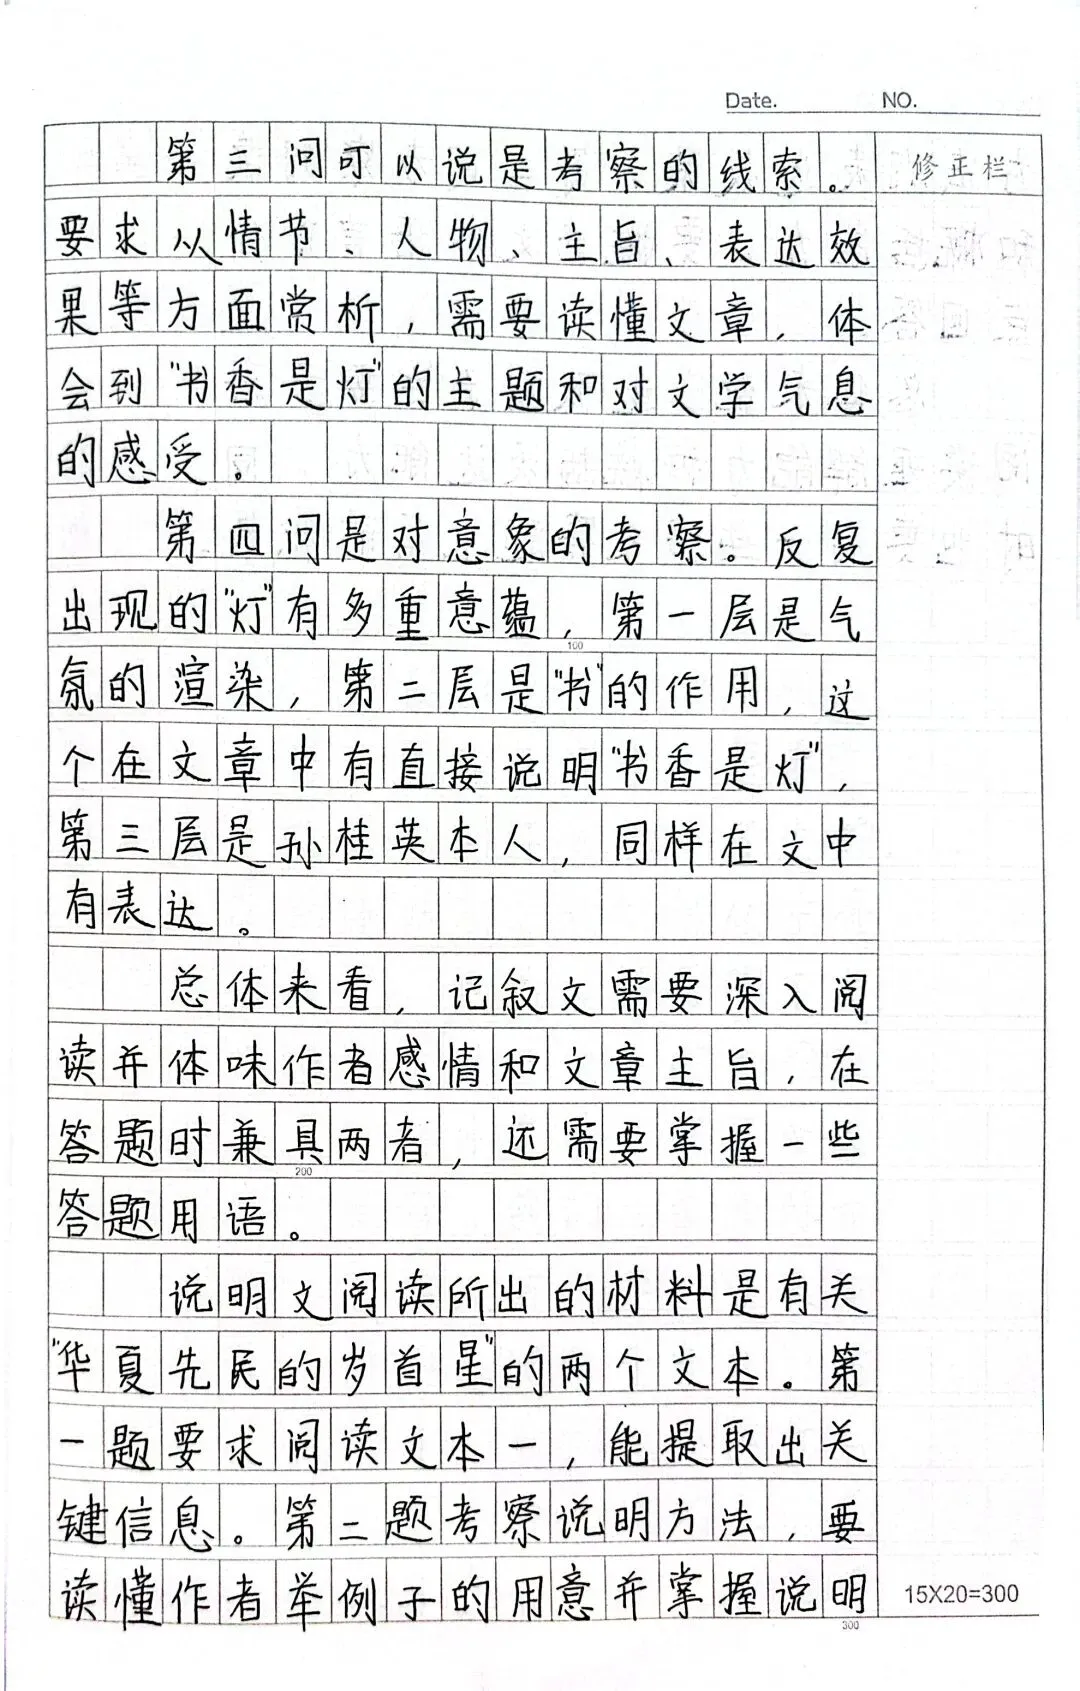 Date. NO.
第三问可以说是考察的线索。
修正栏
要求从情节、人物、主旨、表达效
果等方面赏析，需要读懂文章，体
会到“书香是灯”的主题和对文学气息
的感受。
第四问是对意象的考察。反复
出现的“灯”有多重意蕴，第一层是气
100
氛的渲染，第二层是“书”的作用，这
个在文章中有直接说明“书香是灯”，
第三层是孙桂英本人，同样在文中
有表达。
总体来看，记叙文需要深入阅
读并体味作者感情和文章主旨，在
答题时兼具两者，还需要掌握一些
200
答题用语。
说明文阅读所出的材料是有关
“华夏先民的岁首星”的两个文本。第
一题要求阅读文本一，能提取出关
键信息。第二题考察说明方法，要
读懂作者举例子的用意并掌握说明
15X20=300
300